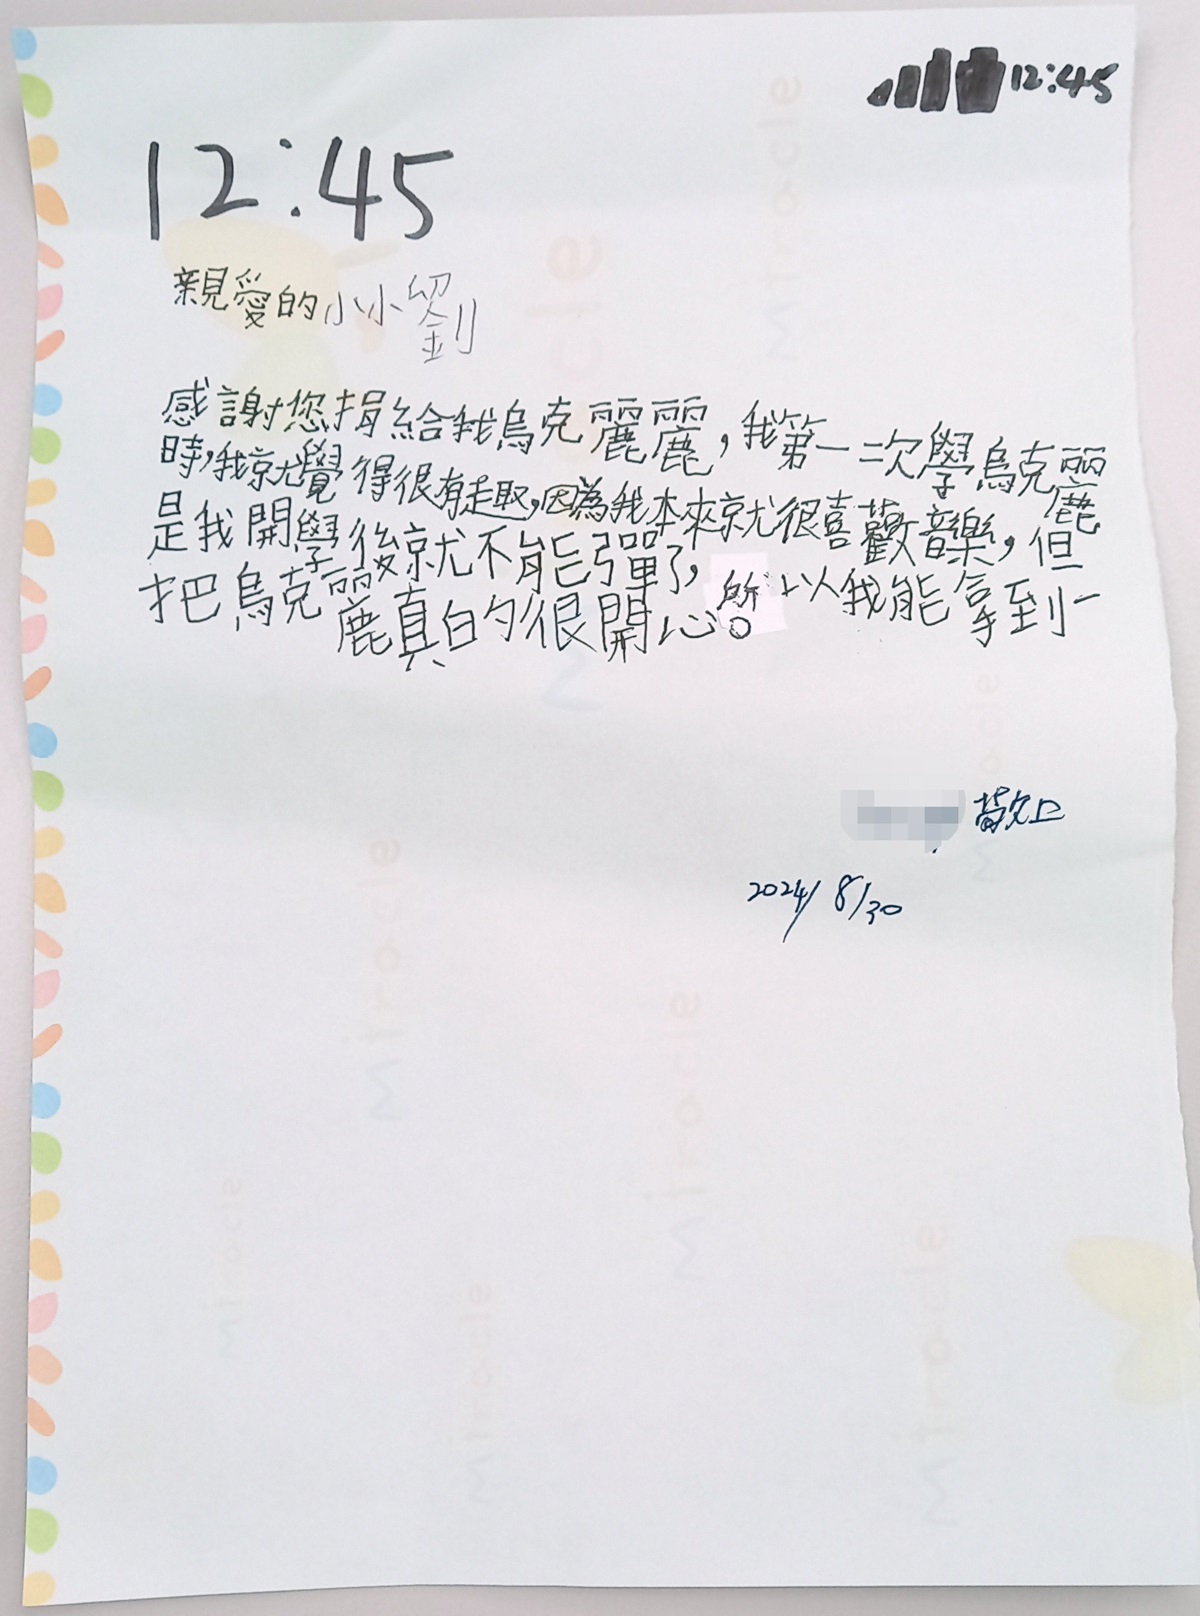 12:45
12:45
親愛的小小劉
感謝您捐給我烏克麗麗,我第一次學烏克麗
時,我就覺得很有趣,因為我本來就很喜歡音樂,但
是我開學後就不能彈了,所以我能拿到一
把烏克麗麗真的很開心。
敬上
2024/8/30
mirocle
mirocle
mirocle
mirocle
mirocle
mirocle
mirocle
mirocle